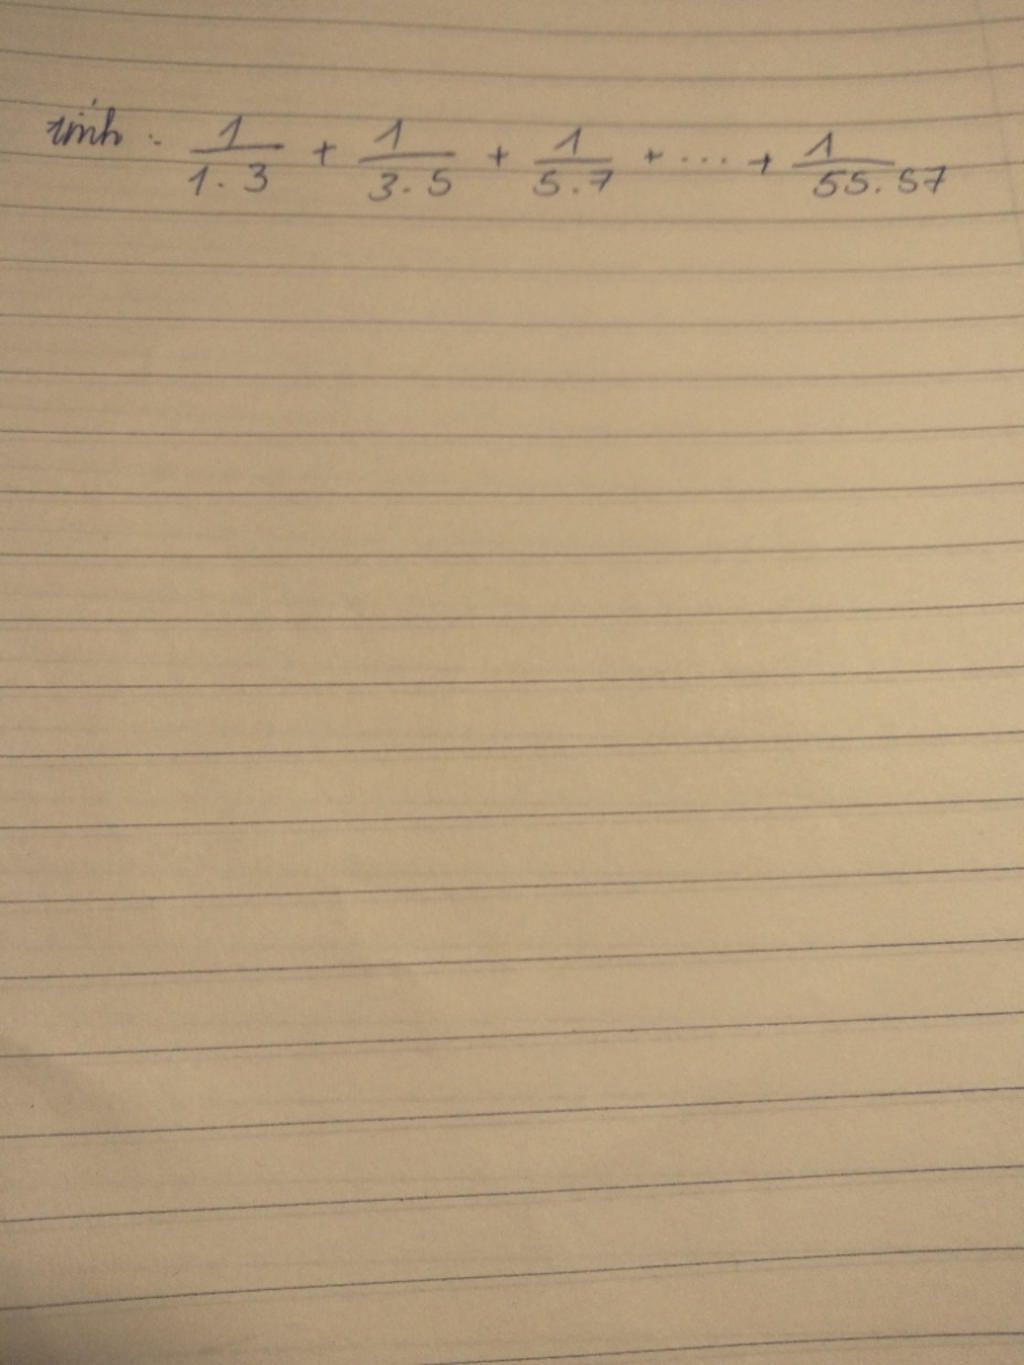 tính: 1/1.3 + 1/3.5 + 1/5.7 + ... + 1/55.57